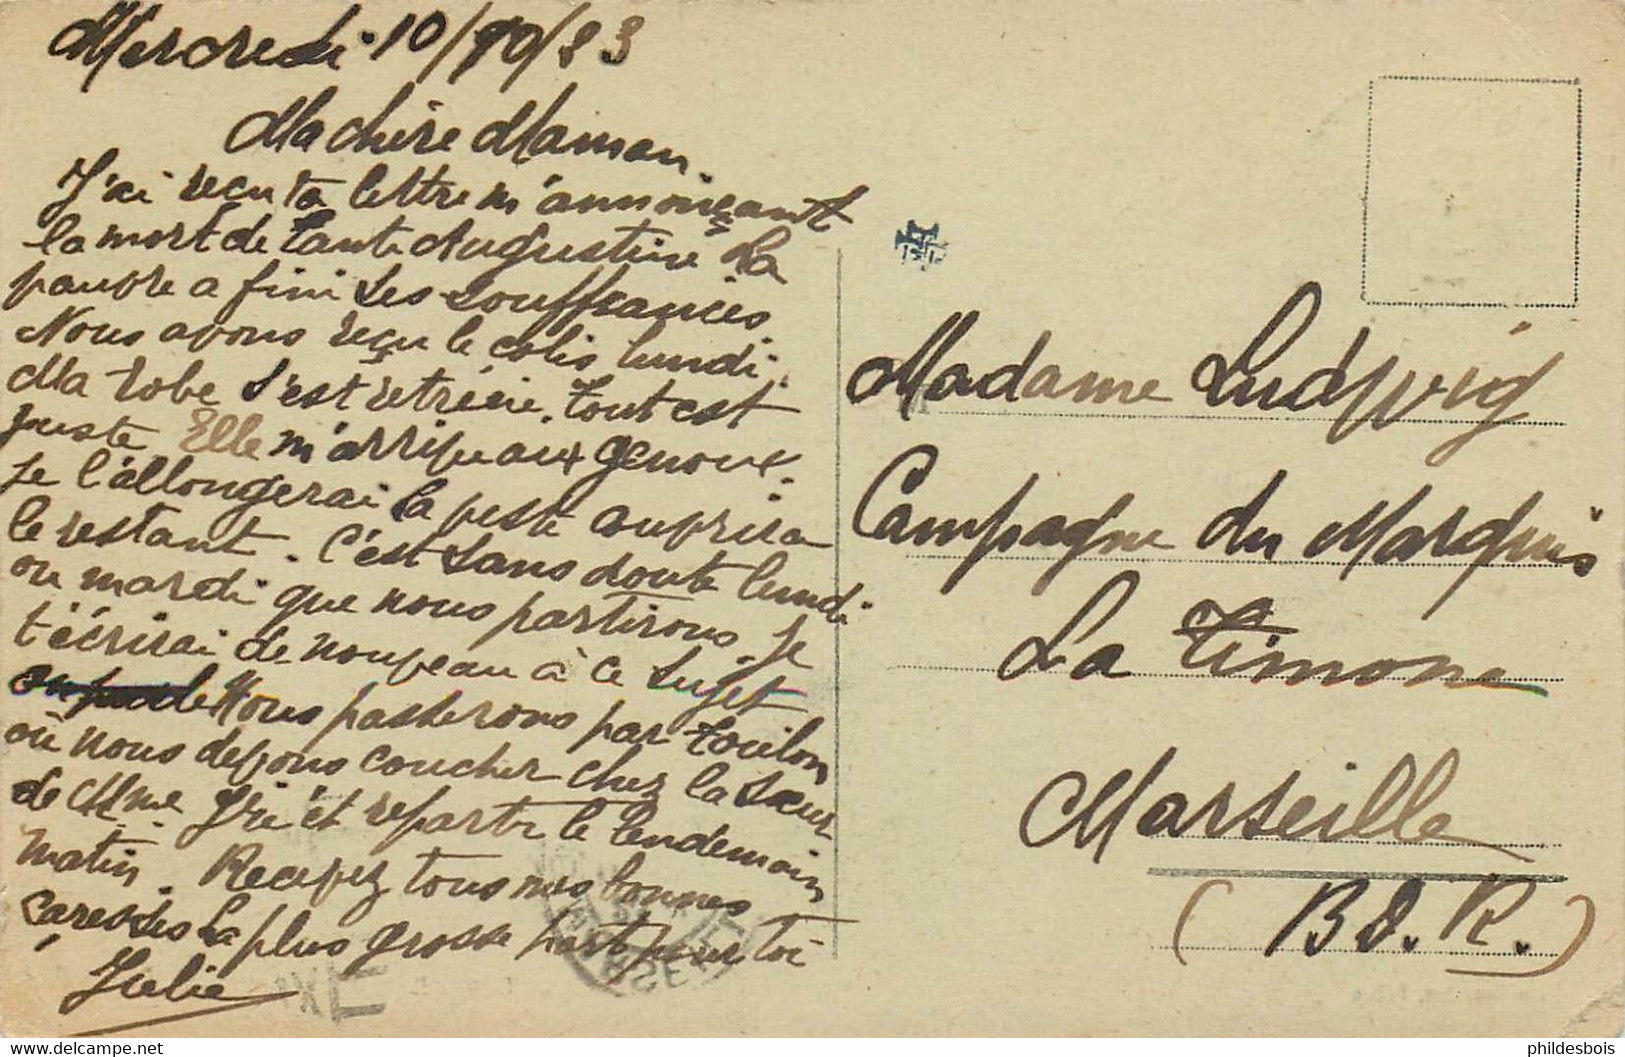 Mercredi 10/10/23
Ma chère Maman
J'ai reçu ta lettre m'annonçant
la mort de tante Augustine La
pauvre a fini ses souffrances
Nous avons reçu le colis lundi.
Ma robe s'est rétrécie. Tout est
juste Elle m'arrive aux genoux.
Je l'allongerai la veste couvrira
le restant. C'est sans doute lundi
ou mardi que nous partirons. Je
t'écrirai de nouveau à ce sujet
Nous passerons par Toulon
où nous devons coucher chez la sœur
de Mme et repartir le lendemain
matin. Recevez tous nos bonnes
caresses La plus grosse part pour toi
Julie
Madame Ludwig
Campagne du Marquis
La Timone
Marseille
(B D. R.)
phildesbois